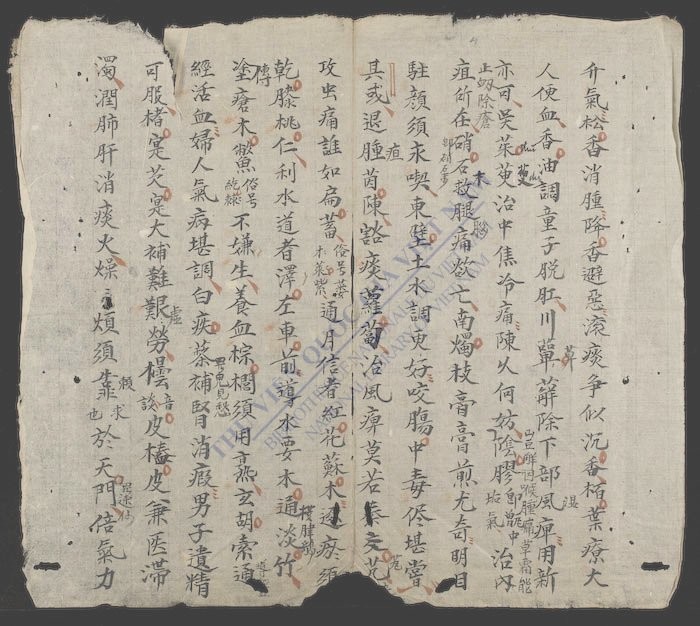 介氣松香消腫降香避惡滾痰爭似沉香栢葉療大
人便血香油調童子脫肛川萆薢除下部風痺用新
亦可吳茱萸治中焦冷痛陳久何妨陰膠治內
止蚓除瘡
疽所在硝石救腿痛欲亡南燭枝膏膏煎尤奇明目
駐顏須求喫東壁土水調更好咬腸中毒侭堪嘗
其或退腫茵陳豁痰蘿蔔治風痺莫若秦艽
攻虫痛誰如扁蓄俗号通月信者紅花蘇木逐瘀須
乾膝桃仁利水道者澤左車前導水要木通淡竹
塗瘡木鱉俗号不嫌生養血棕櫚須用玄胡索通
經活血婦人氣病堪調白疾茶補腎消瘕男子遺精
可服楮寔芡寔大補難艱勞皮皮兼医滯
濁潤肺肝消痰火燥〻煩須靠於天門倍氣力
THƯ VIỆN QUỐC GIA VIỆT NAM
BIBLIOTHÈQUE NATIONALE DU VIETNAM
NATIONAL LIBRARY OF VIETNAM